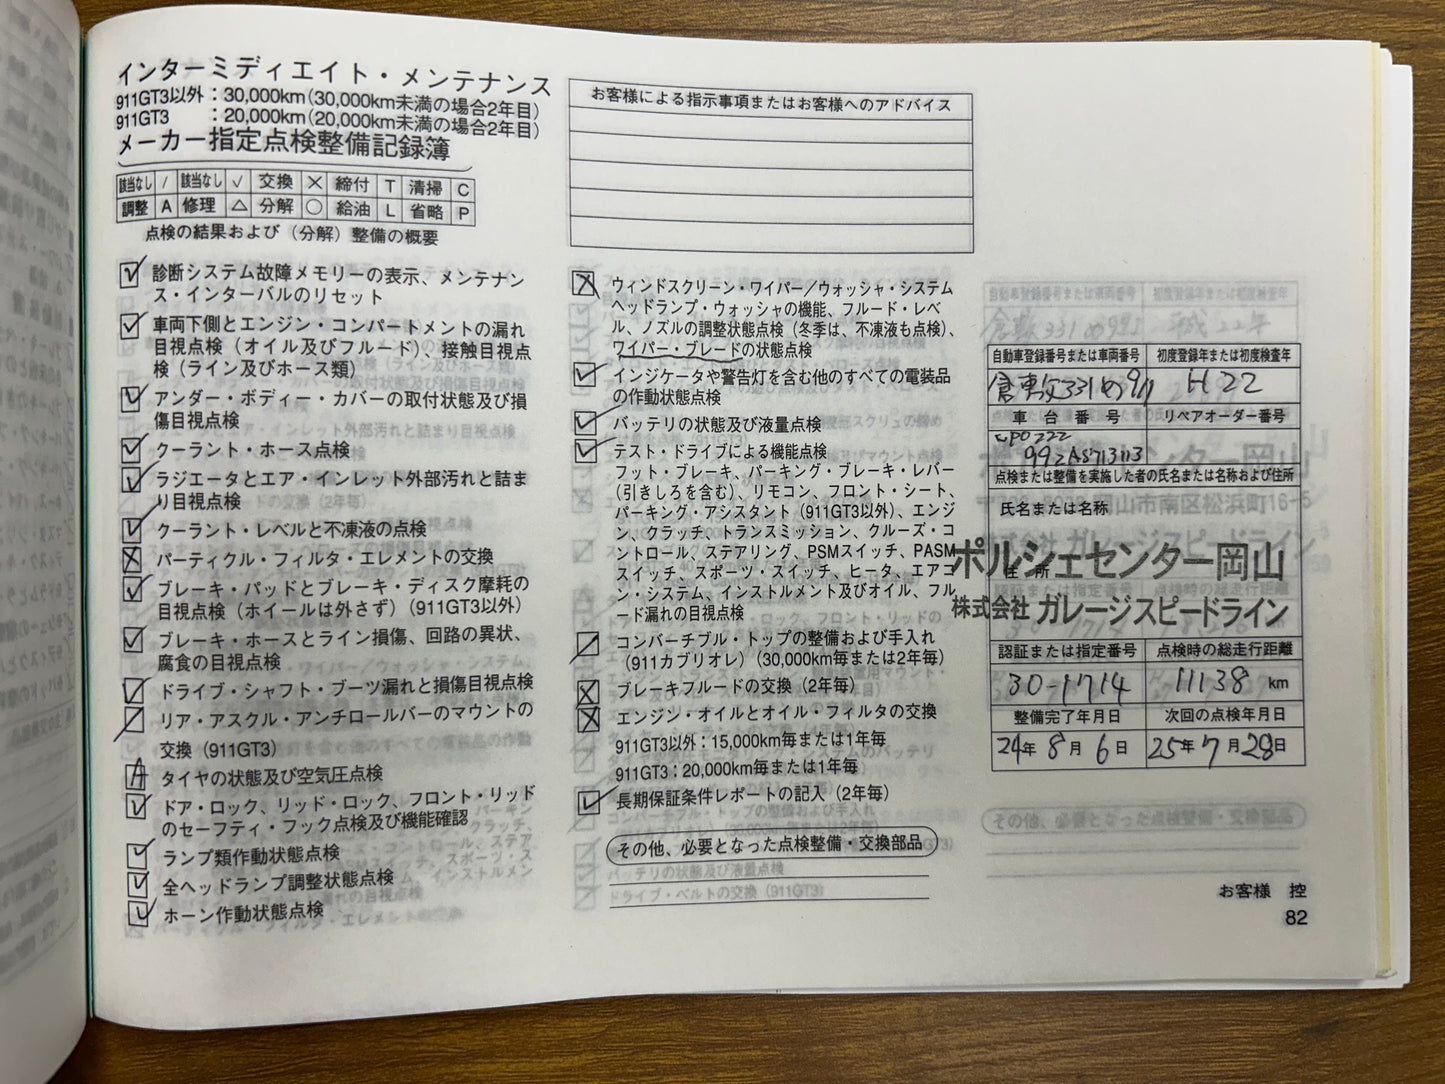 インターミディエイト・メンテナンス
911GT3以外：30,000km（30,000km未満の場合2年目）
911GT3　　：20,000km（20,000km未満の場合2年目）
メーカー指定点検整備記録簿
該当なし / 該当なし √ 交換 × 締付 T 清掃 C
調整 A 修理 △ 分解 ○ 給油 L 省略 P
点検の結果および（分解）整備の概要
診断システム故障メモリーの表示、メンテナン
ス・インターバルのリセット
車両下側とエンジン・コンパートメントの漏れ
目視点検（オイル及びフルード）、接触目視点
検（ライン及びホース類）
アンダー・ボディー・カバーの取付状態及び損
傷目視点検
クーラント・ホース点検
ラジエータとエア・インレット外部汚れと詰ま
り目視点検
クーラント・レベルと不凍液の点検
パーティクル・フィルタ・エレメントの交換
ブレーキ・パッドとブレーキ・ディスク摩耗の
目視点検（ホイールは外さず）（911GT3以外）
ブレーキ・ホースとライン損傷、回路の異状、
腐食の目視点検
ドライブ・シャフト・ブーツ漏れと損傷目視点検
リア・アスクル・アンチロールバーのマウントの
交換（911GT3）
A タイヤの状態及び空気圧点検
ドア・ロック、リッド・ロック、フロント・リッド
のセーフティ・フック点検及び機能確認
ランプ類作動状態点検
全ヘッドランプ調整状態点検
ホーン作動状態点検
お客様による指示事項またはお客様へのアドバイス
ウィンドスクリーン・ワイパー／ウォッシャ・システム
ヘッドランプ・ウォッシャの機能、フルード・レベ
ル、ノズルの調整状態点検（冬季は、不凍液も点検）、
ワイパー・ブレードの状態点検
インジケータや警告灯を含む他のすべての電装品
の作動状態点検
バッテリの状態及び液量点検
テスト・ドライブによる機能点検
フット・ブレーキ、パーキング・ブレーキ・レバー
（引きしろを含む）、リモコン、フロント・シート、
パーキング・アシスタント（911GT3以外）、エンジ
ン、クラッチ、トランスミッション、クルーズ・コ
ントロール、ステアリング、PSMスイッチ、PASM
スイッチ、スポーツ・スイッチ、ヒータ、エアコ
ン・システム、インストルメント及びオイル、フル
ード漏れの目視点検
コンバーチブル・トップの整備および手入れ
（911カブリオレ）（30,000km毎または2年毎）
ブレーキフルードの交換（2年毎）
エンジン・オイルとオイル・フィルタの交換
911GT3以外：15,000km毎または1年毎
911GT3：20,000km毎または1年毎
長期保証条件レポートの記入（2年毎）
その他、必要となった点検整備・交換部品
自動車登録番号または車両番号 初度登録年または初度検査年
倉敷331 911 H22
車台番号 リペアオーダー番号
WP0ZZZ
99ZAS713113
点検または整備を実施した者の氏名または名称および住所
氏名または名称
ポルシェセンター岡山
住所
株式会社 ガレージスピードライン
認証または指定番号 点検時の総走行距離
30-1714 11138 km
整備完了年月日 次回の点検年月日
24年8月6日 25年7月28日
お客様 控
82